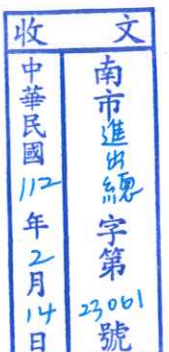 收文
南市進出總字第23061號
中華民國112年2月14日